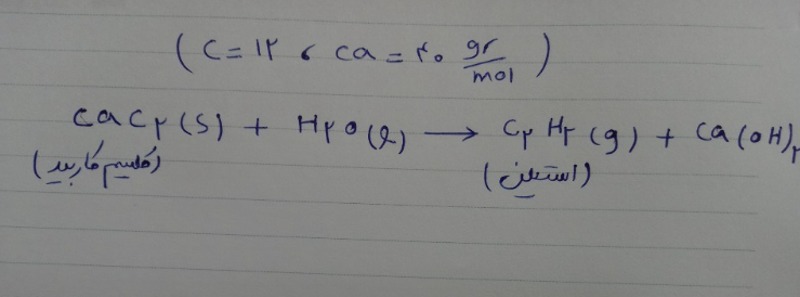 (C = ۱۲ ، ca = ۴۰ gr/mol)
CaC۲(s) + H۲O(l) → C۲H۲(g) + Ca(OH)۲
(کلسیم کاربید) (استیلن)